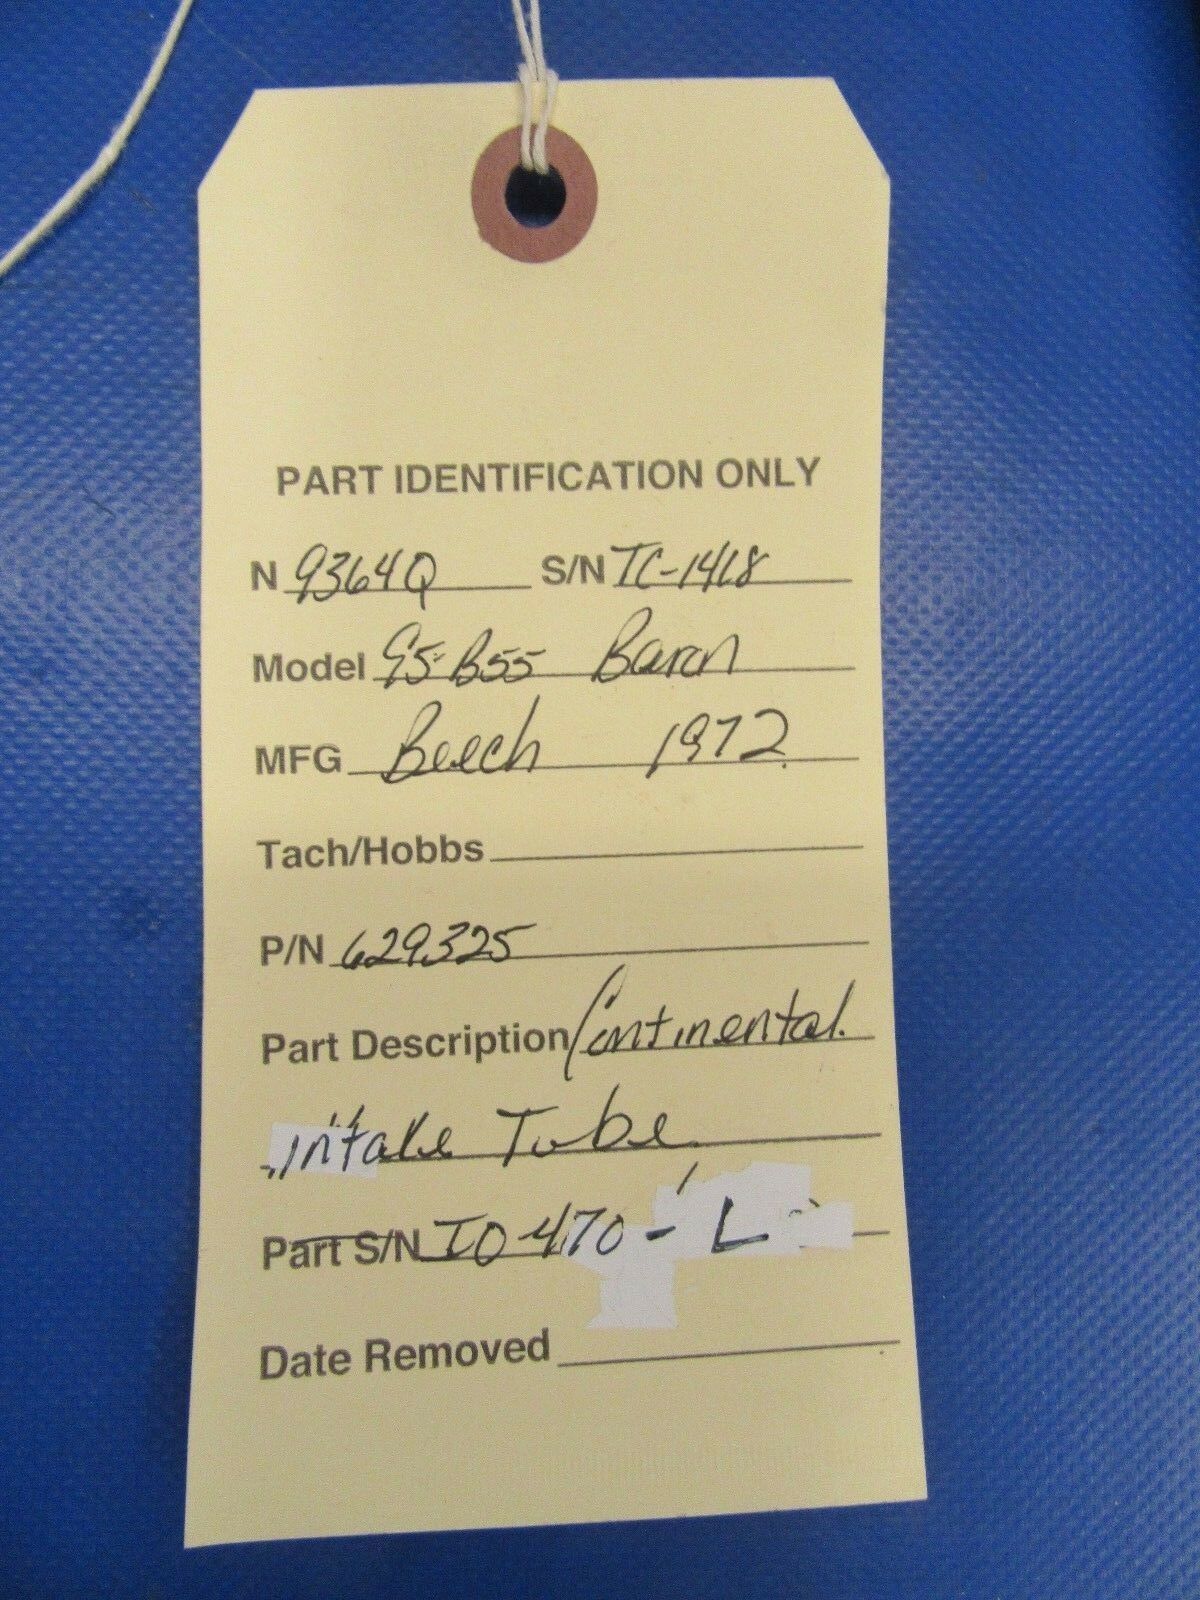 PART IDENTIFICATION ONLY
N 9364Q S/N TC-1418
Model 95-B55 Baron
MFG Beech 1972
Tach/Hobbs
P/N 629325
Part Description Continental
intake Tube
Part S/N IO-470-L
Date Removed